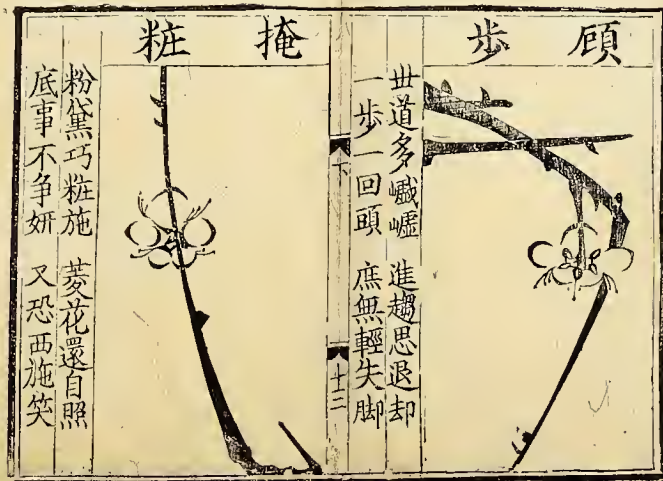 頋歩
丗道多巇 進趨思退却
一歩一回頭 庶無輕失脚
下
十二
掩粧
粉黛巧粧施 菱花還自照
底事不争妍 又恐西施笑